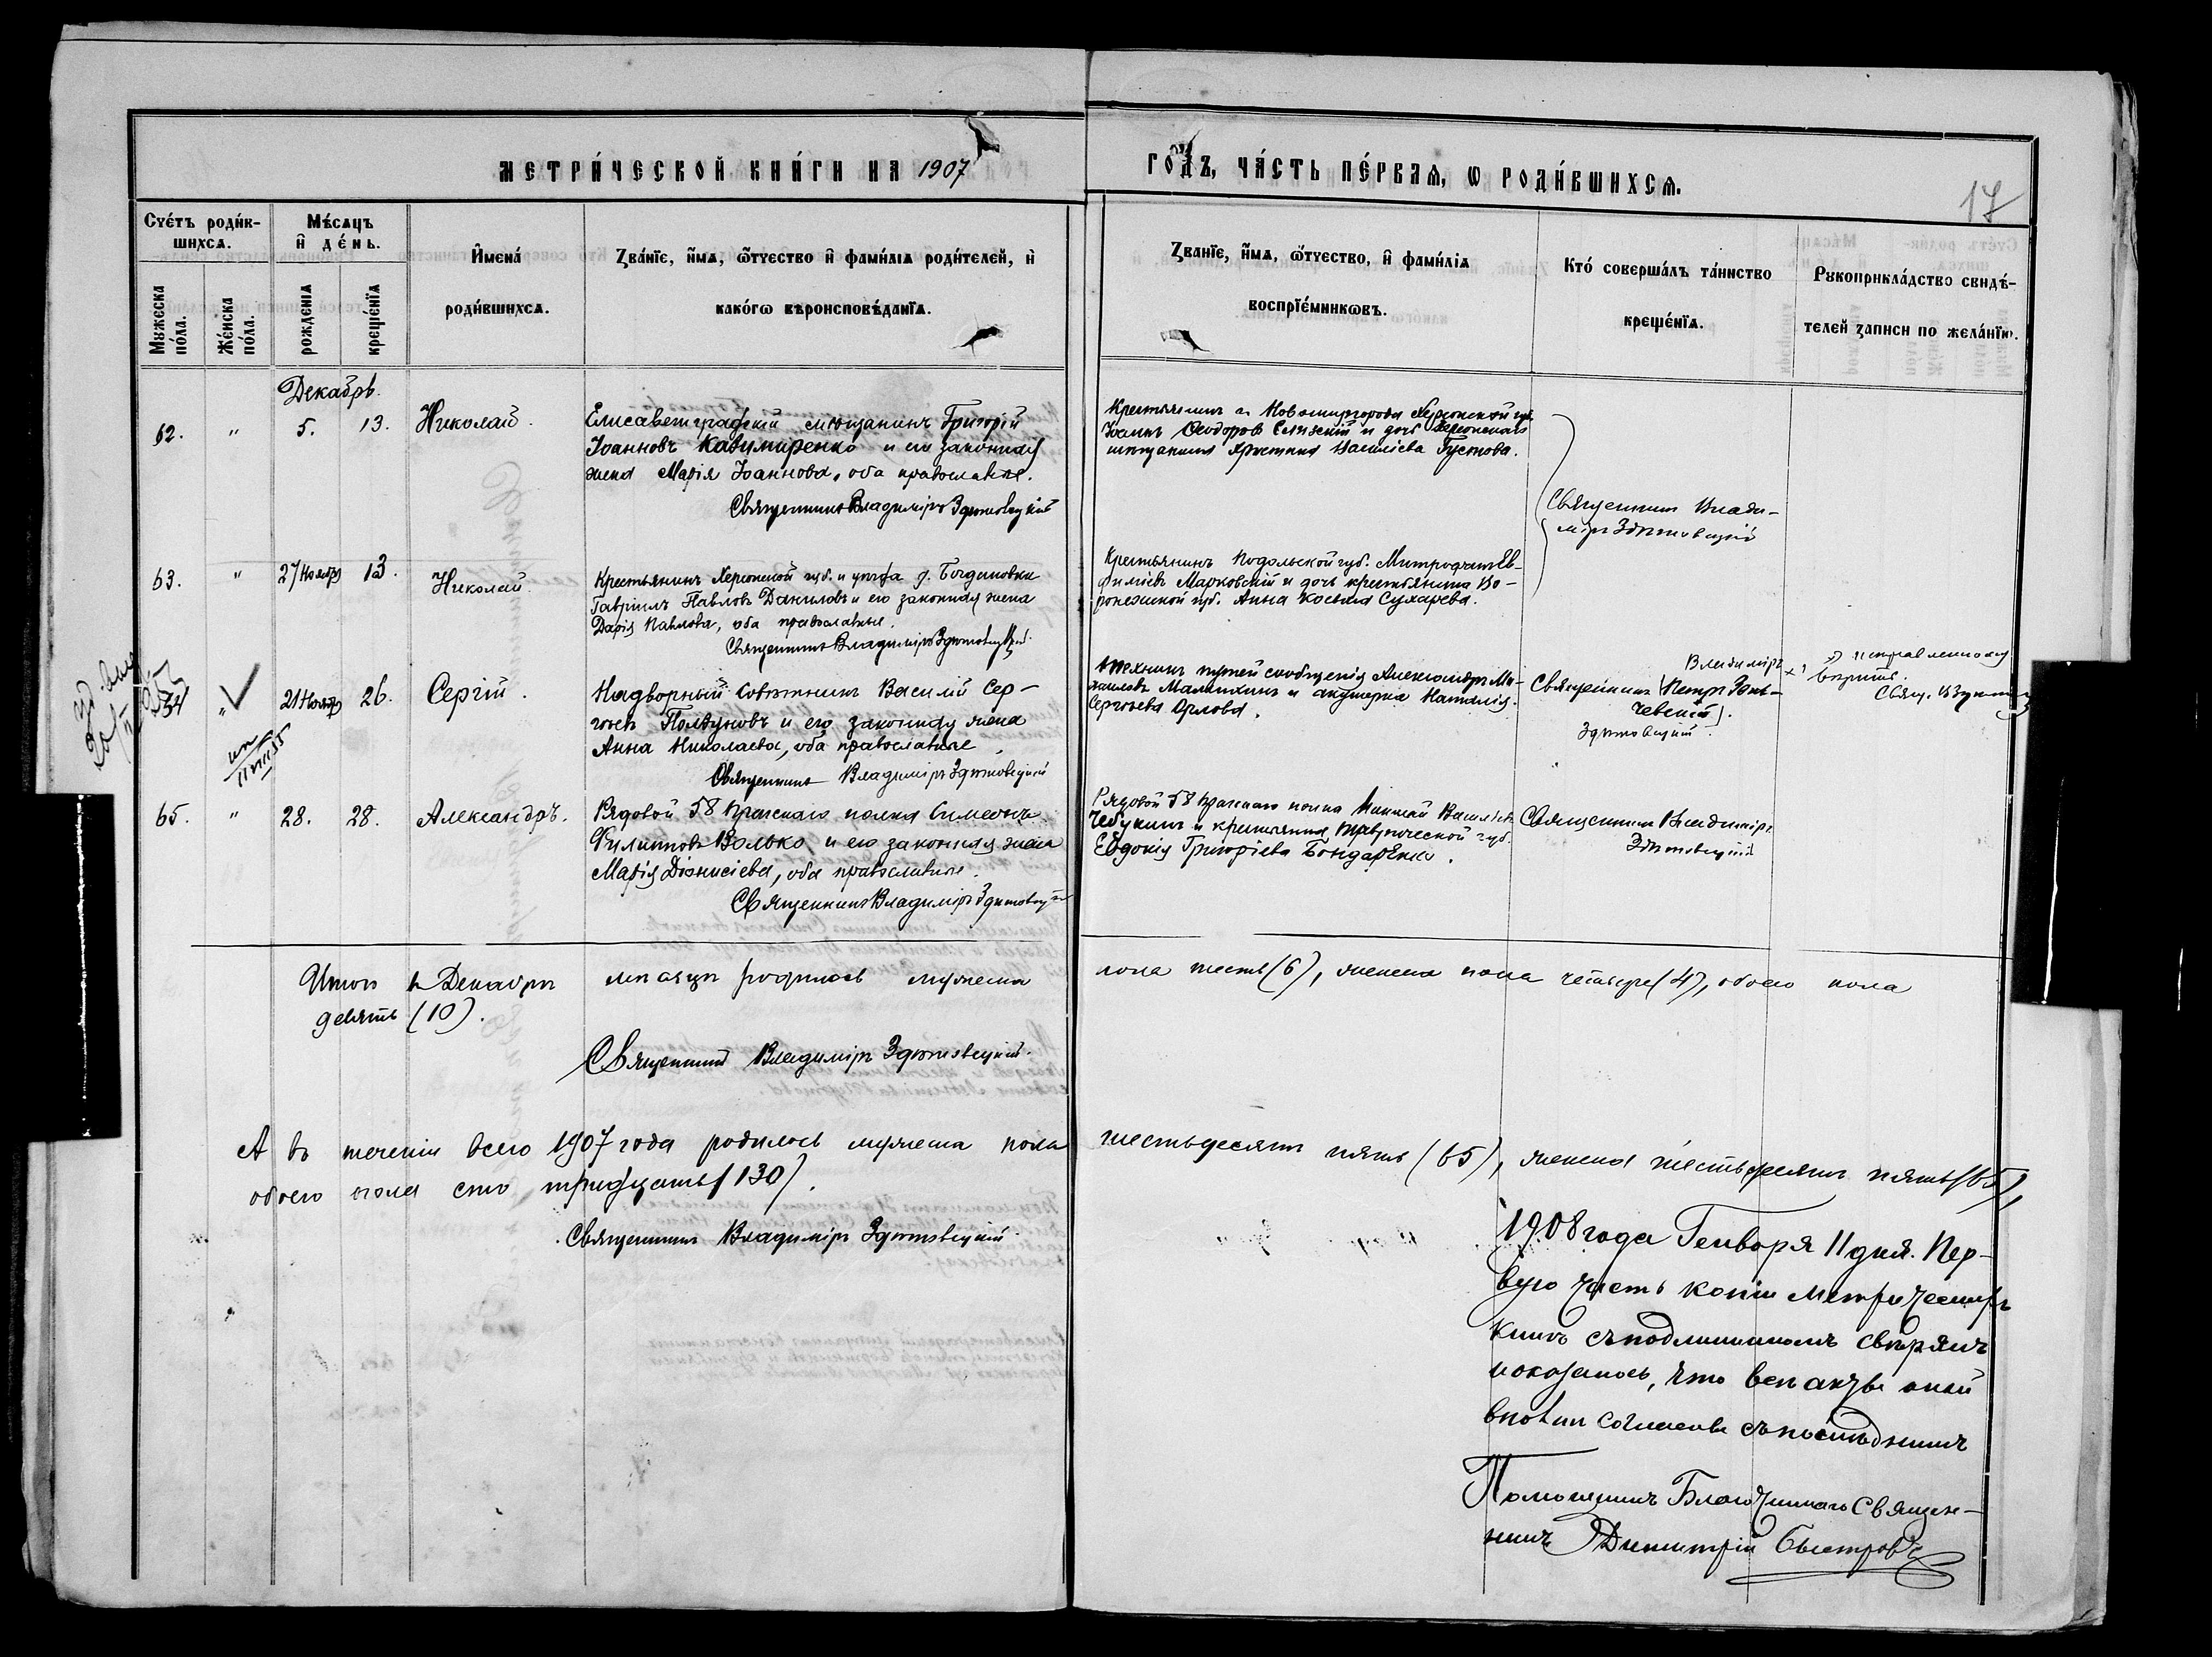 МЕТРИ́ЧЕСКОЙ КНИ́ГИ НА 1907
ГО́ДЪ, ЧА́СТЬ ПЕ́РВАѦ, Ѡ РОДИ́ВШИХСѦ.
17
Счéтъ роди́в-
шихсѧ.
Мѣ́сѧцъ
и҆ де́нь.
Мꙋжеска
по́ла.
Же́нска
по́ла.
рожденїѧ
креще́нїѧ
И҆мена̀
роди́вшихсѧ.
Зва́нїе, и҆́мѧ, ѻ҆́тчество и҆ фами́лїѧ роди́телей, и҆
како́гѡ вѣроисповѣ́данїѧ.
Зва́нїе, и҆́мѧ, ѻ҆́тчество, и҆ фами́лїѧ
воспрїе́мникѡвъ.
Кто̀ соверша́лъ та́инство
креще́нїѧ.
Рꙋкоприкла́дство свидѣ́-
телей записи по жела́нїю.
Декабрь.
62. " 5. 13. Николай.
Елисаветградскій мѣщанинъ Григорій
Іоанновъ Казимиренко и его законная
жена Марія Іоаннова, оба православные.
Священникъ Владиміръ Здитовецкій
Крестьянинъ г. Новомиргорода Херсонской губ.
Іоаннъ Ѳеодоровъ и дочь Херсонскаго
мѣщанина Христина Василіева Густова.
Священникъ Влади-
міръ Здитовецкій
63. " 27 Ноября 13. Николай.
Крестьянинъ Херсонской губ. и уѣзда д. Богдановки
Гавріилъ Павловъ Даниловъ и его законная жена
Дарія Павлова, оба православные.
Священникъ Владиміръ Здитовецкій.
Крестьянинъ Подольской губ. Митрофанъ Ев-
фиміевъ Марковскій и дочь крестьянина Во-
ронежской губ. Анна Косьмина Сухарева.
64 " 21 Ноября 26. Сергій.
Надворный Совѣтникъ Василій Сер-
гіевъ Полѣуновъ и его законная жена
Анна Николаева, оба православные.
Священникъ Владиміръ Здитовецкій
Техникъ путей сообщенія Александръ Ми-
хаиловъ Малинкинъ и акушерка Наталія
Сергіева Орлова.
Владиміръ
Священникъ (Петръ Зень-
чевскій).
Здитовецкій.
исправленному
вѣрить.
Свящ.
65. " 28. 28. Александръ.
Рядовой 58 Пражскаго полка Симеонъ
Филипповъ Волько и его законная жена
Марія Діонисіева, оба православные.
Священникъ Владиміръ Здитовецкій
Рядовой 58 Пражскаго полка Николай Васильевъ
Чебукинъ и крестьянка Таврической губ.
Евдокія Григоріева Бондаренко.
Священникъ Владиміръ
Здитовецкій
Итого въ Декабрѣ мѣсяцѣ родилось мужеска пола шесть (6), женска пола четыре (4), обоего пола
девять (10).
Священникъ Владиміръ Здитовецкій.
А въ теченіи всего 1907 года родилось мужеска пола шестьдесятъ пять (65), женска шестьдесятъ пять (65),
обоего пола сто тридцать (130).
Священникъ Владиміръ Здитовецкій
1908 года Генваря 11 дня. Пер-
вую часть копіи метрическихъ
книгъ съ подлинникомъ свѣрялъ
и оказалось, что всѣ акты оной
вполнѣ согласны съ послѣднимъ
Помощникъ Благочиннаго Священ-
никъ Димитрій Быстровъ